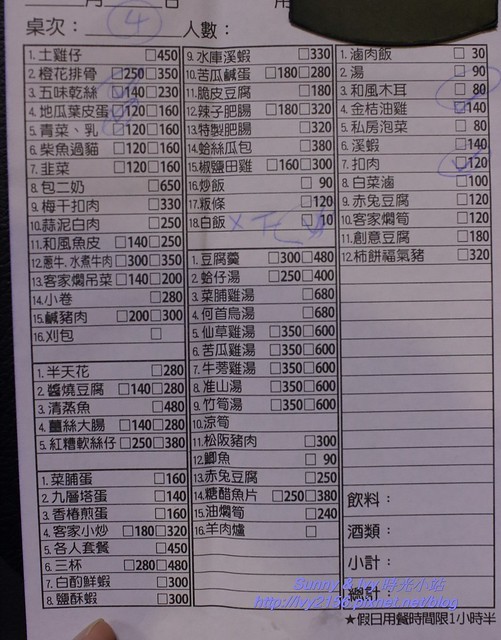 桌次： 4 人數：
1. 土雞仔 □450
2. 橙花排骨 □250□350
3. 五味乾絲 □140□230
4. 地瓜葉皮蛋□120□160
5. 青菜、乳 □120□160
6. 柴魚過貓 □120□160
7. 韭菜 □120□160
8. 包二奶 □650
9. 梅干扣肉 □330
10. 蒜泥白肉 □250
11. 和風魚皮 □140□250
12. 蔥牛.水煮牛肉□300□350
13. 客家燜吊菜□140□200
14. 小卷 □280
15. 鹹豬肉 □200□300
16. 刈包 □
1. 半天花 □280
2. 醬燒豆腐 □140□280
3. 清蒸魚 □480
4. 薑絲大腸 □140□280
5. 紅糟軟絲仔□250□380
1. 菜脯蛋 □160
2. 九層塔蛋 □140
3. 香椿煎蛋 □160
4. 客家小炒 □180□320
5. 各人套餐 □450
6. 三杯 □280□480
7. 白酌鮮蝦 □300
8. 鹽酥蝦 □300
9. 水庫溪蝦 □330
10. 苦瓜鹹蛋 □180□280
11. 脆皮豆腐 □180
12. 辣子肥腸 □180□320
13. 特製肥腸 □320
14. 蛤絲瓜包 □380
15. 椒鹽田雞 □160□300
16. 炒飯 □ 90
17. 粄條 □120
18. 白飯 □ 10
1. 豆腐羹 □300□480
2. 蛤仔湯 □250□400
3. 菜脯雞湯 □680
4. 何首烏湯 □680
5. 仙草雞湯 □350□600
6. 苦瓜雞湯 □350□600
7. 牛蒡雞湯 □350□600
8. 准山湯 □350□600
9. 竹筍湯 □350□600
10. 涼筍
11. 松阪豬肉 □300
12. 鯽魚 □ 90
13. 赤兔豆腐 □250
14. 糖醋魚片 □250□380
15. 油燜筍 □240
16. 羊肉爐 □
1. 滷肉飯 □ 30
2. 湯 □ 90
3. 和風木耳 □ 80
4. 金桔油雞 □140
5. 私房泡菜 □ 80
6. 溪蝦 □140
7. 扣肉 □120
8. 白菜滷 □100
9. 赤兔豆腐 □120
10. 客家燜筍 □120
11. 創意豆腐 □180
12. 柿餅福氣豬 □320
飲料：
酒類：
小計：
總計：
★假日用餐時間限1小時半
Sunny & Ivy 時光小站
http://ivy2136.pixnet.net/blog